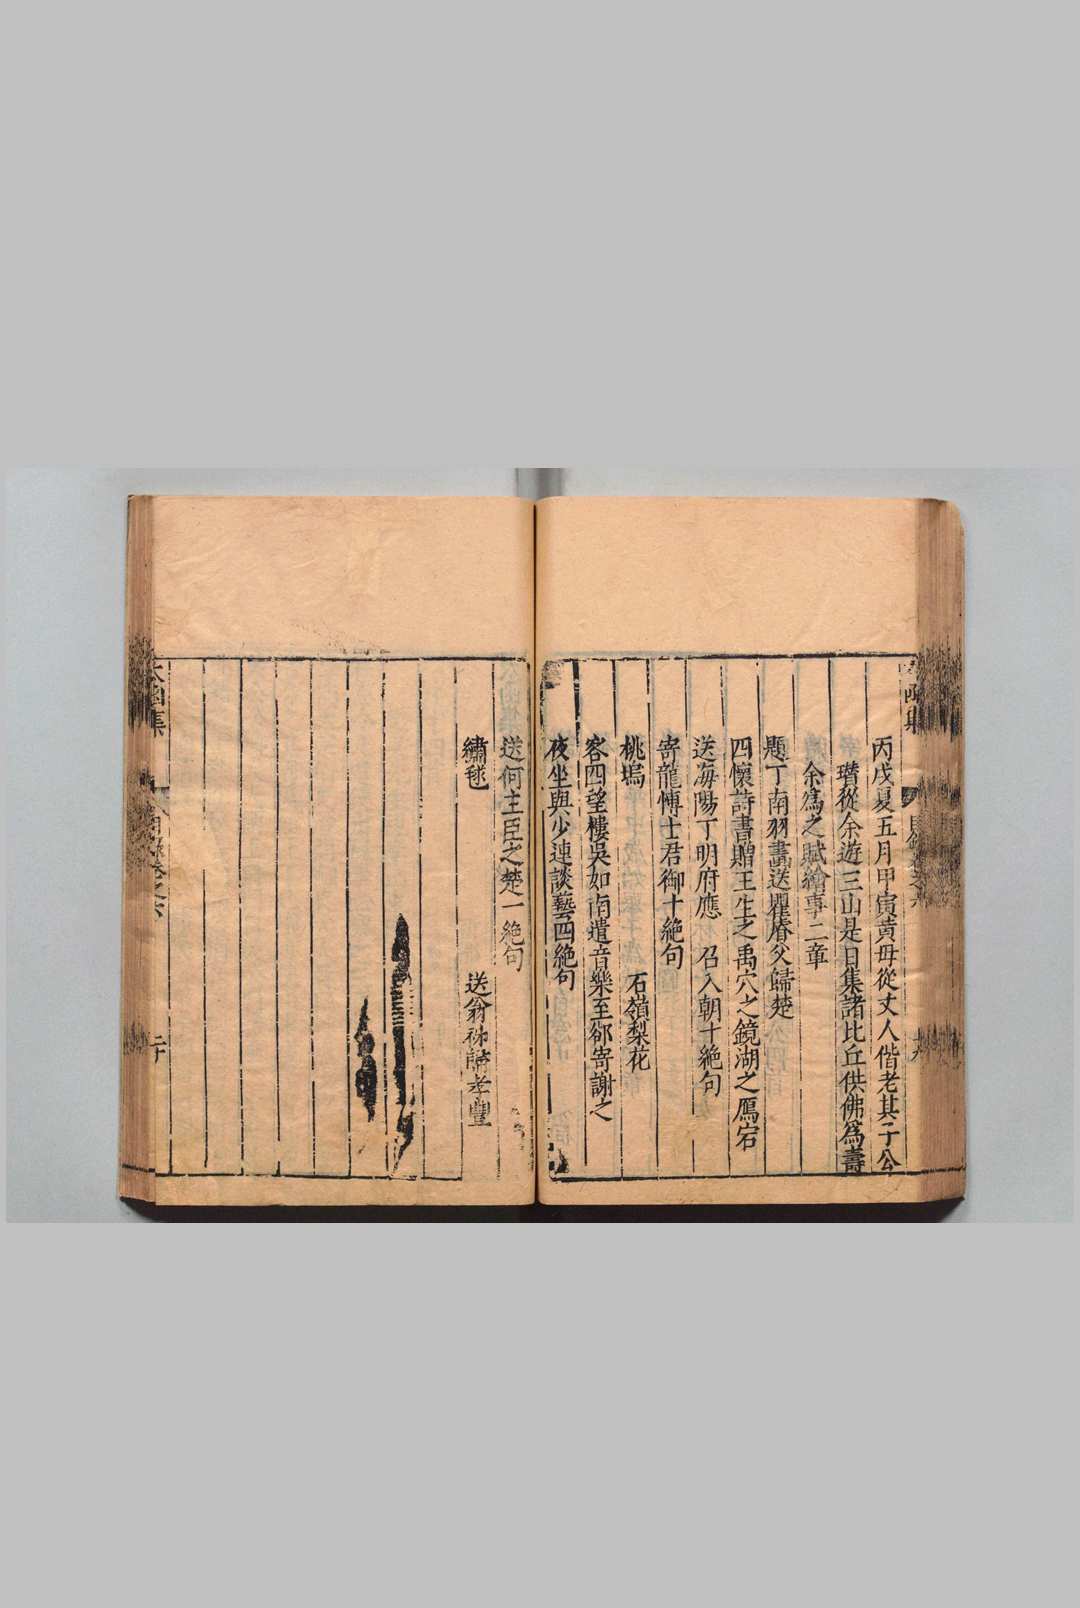 丙戌夏五月甲寅黄母從丈人偕老其子公
瓚從余遊三山是日集諸比丘供佛爲壽
余爲之賦繪事二章
題丁南羽畫送瞿睿父歸楚
四懷詩書贈王生之禹穴之鏡湖之鴈宕
送海陽丁明府應 召入朝十絶句
寄龍愽士君御十絶句
桃塢 石嶺梨花
客四望樓吳如南遣音樂至郤寄謝之
夜坐與少連談藝四絶句
送何主臣之楚一絶句
繡毬 送翁 孝豐
太函集 目録卷之六 二十